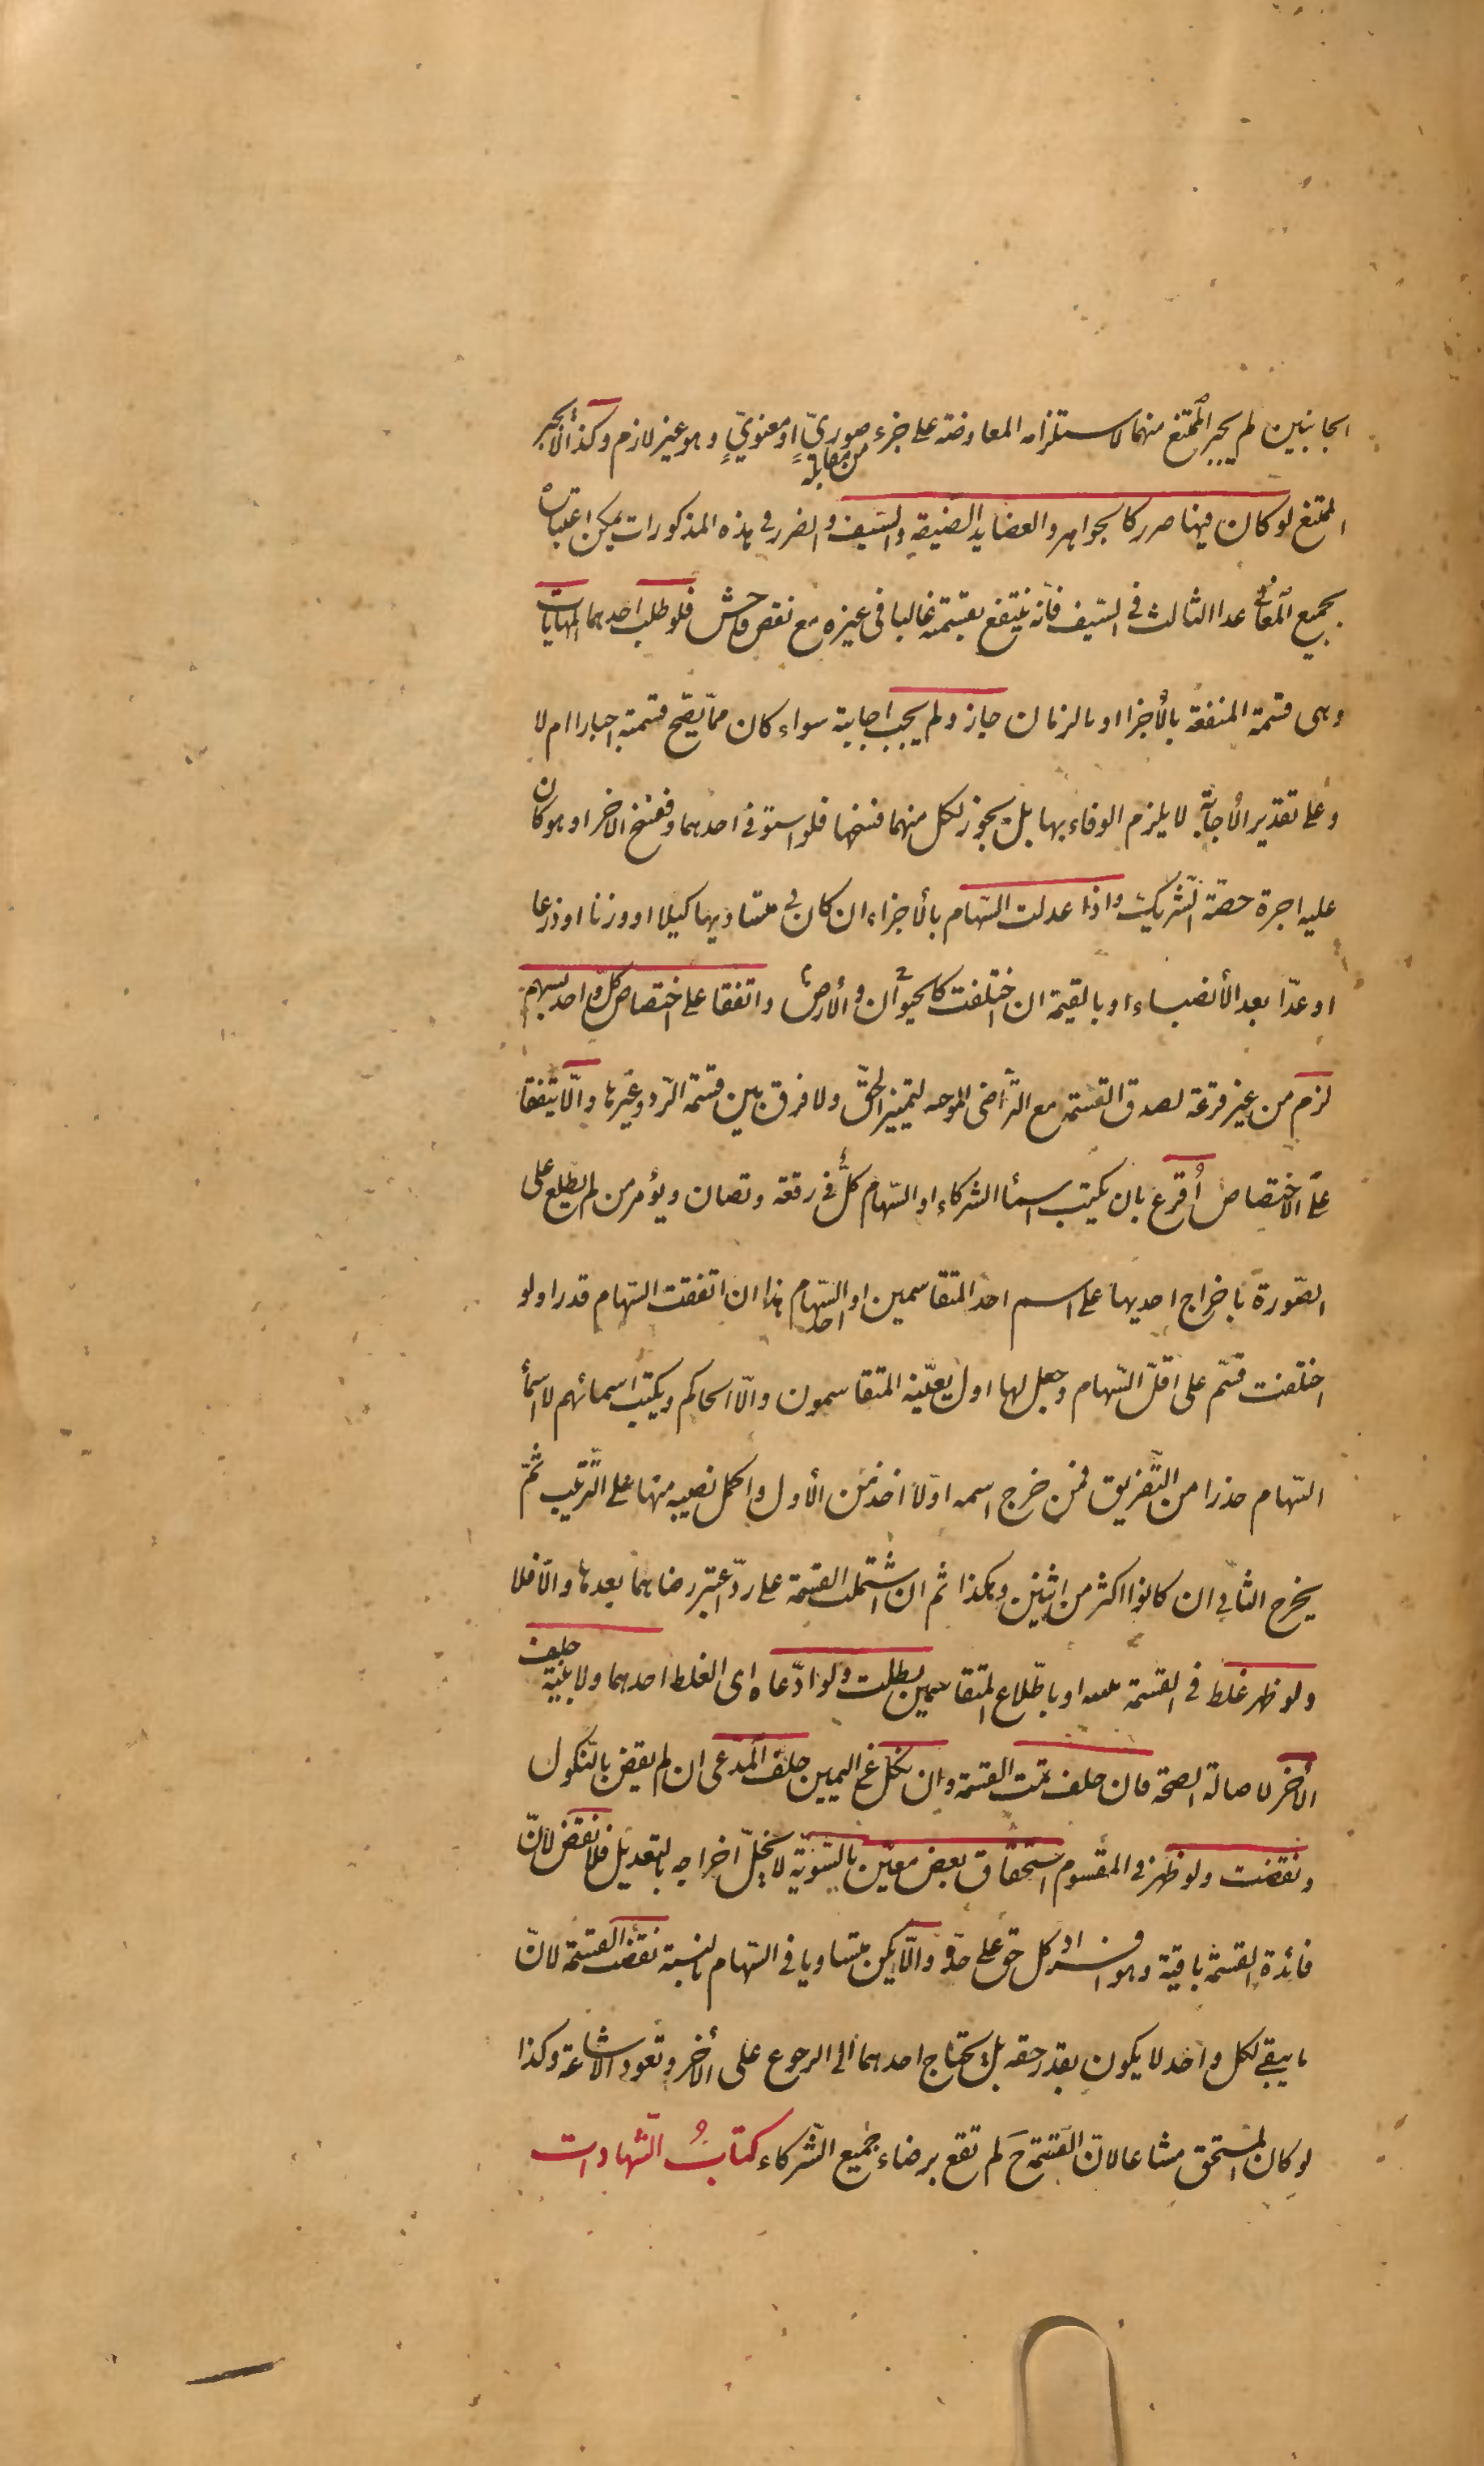 الجانبين لم يجبر الممتنع منهما لاستلزامه المعاوضة على جزء صوريّ او معنويّ وهو غير لازم وكذا لا يجبر
من مقابله
الممتنع لو كان فيها ضرر كالجواهر والعضايد الضيقة والسّيف والضرر فى هذه المذكورات يمكن اعتباره
بجميع المعانى عدا الثالث فى السّيف فانه ينتفع بقسمته غالبا فى غيره مع نقص فاحش فلو طلب احدهما المهاياة
وهى قسمة المنفعة بالأجزا او بالزمان جاز ولم يجب اجابته سواء كان ممّا يصّح قسمته اجبارا ام لا
وعلى تقدير الأجابة لا يلزم الوفاء بها بل يجوز لكل منهما فسخها فلو استوفى احدهما وفسخ الاخر او هو كان
عليه اجرة حصّة الشّريك واذا عدلت السّهام بالأجزاء ان كان فى متساويها كيلا او وزنا او ذرعا
او عدّا بعد الأنصباء او بالقيمة ان اختلفت كالحيوان والأرض واتفقا على اختصاص كلّ واحد بسهم
لزم من غير قرعة لصدق القسمة مع التّراضى الموجبه لتمييز الحقّ ولا فرق بين قسمة الرّد وغيرها والّا يتّفقا
على الاختصاص أُقرع بان يكتب اسما الشركاء او السّهام كلٌّ فى رقعة وتصان ويؤمر من لم يطّلع على
الصّورة باخراج احديها على اسم احد المتقاسمين او احد السّهام هذا ان اتفقت السّهام قدرا ولو
اختلفت قسّم على اقلّ السّهام وجعل لها اول يعيّنه المتقاسمون والّا الحاكم ويكتب اسمائهم لا اسمأ
السّهام حذرا من التّفريق فمن خرج اسمه اوّلا اخذ من الأول واكمل نصيبه منها على التّرتيب ثمّ
يخرج الثانى ان كانوا اكثر من اثنين وهكذا ثم ان اشتملت القسمة على ردّ اعتبر رضاهما بعدها والّا فلا
ولو ظهر غلط فى القسمة او باطّلاع المتقاسمين بطلت ولو ادّعاه اى الغلط احدهما ولا بيّنة حلف
الأخر لاصالة الصحّة فان حلف تمّت القسمة وان نكل عن اليمين حلف المدّعى ان لم يقض بالنّكول
ونقضت ولو ظهر فى المقسوم استحقاق بعض معيّن بالسّويّة لا يخلّ اخراجه بالتعديل فلا نقض لانّ
فائدة القسمة باقية وهو افراد كل حق على حدّة والّا يكن متساويا فى السّهام بالنسبة نقضت القسمة لانّ
ما يبقى لكل واحد لا يكون بقدر حقه بل يحتاج احدهما الى الرجوع على الأخر وتعود الاشاعة وكذا
لو كان المستحق مشاعا لانّ القسمة حَ لم تقع برضاء جميع الشّركاء كتابُ الشّهادات